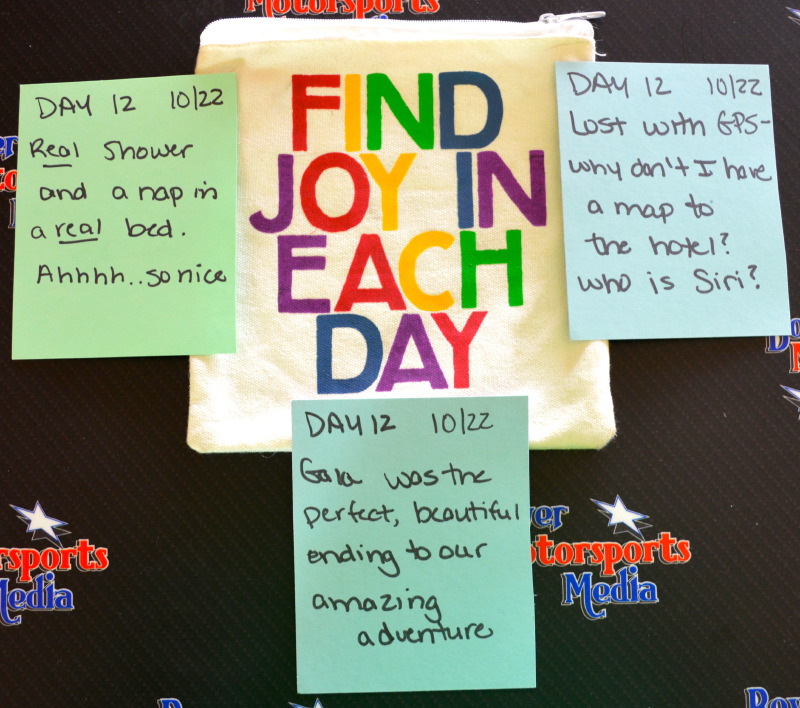 Motorsports
Media
FIND
JOY IN
EACH
DAY
DAY 12 10/22
Real Shower
and a nap in
a real bed.
Ahhhh..so nice
DAY 12 10/22
Lost with GPS-
why don't I have
a map to
the hotel?
who is Siri?
DAY 12 10/22
Gala was the
perfect, beautiful
ending to our
amazing
adventure
rsports
Media
ver
otorsports
Media